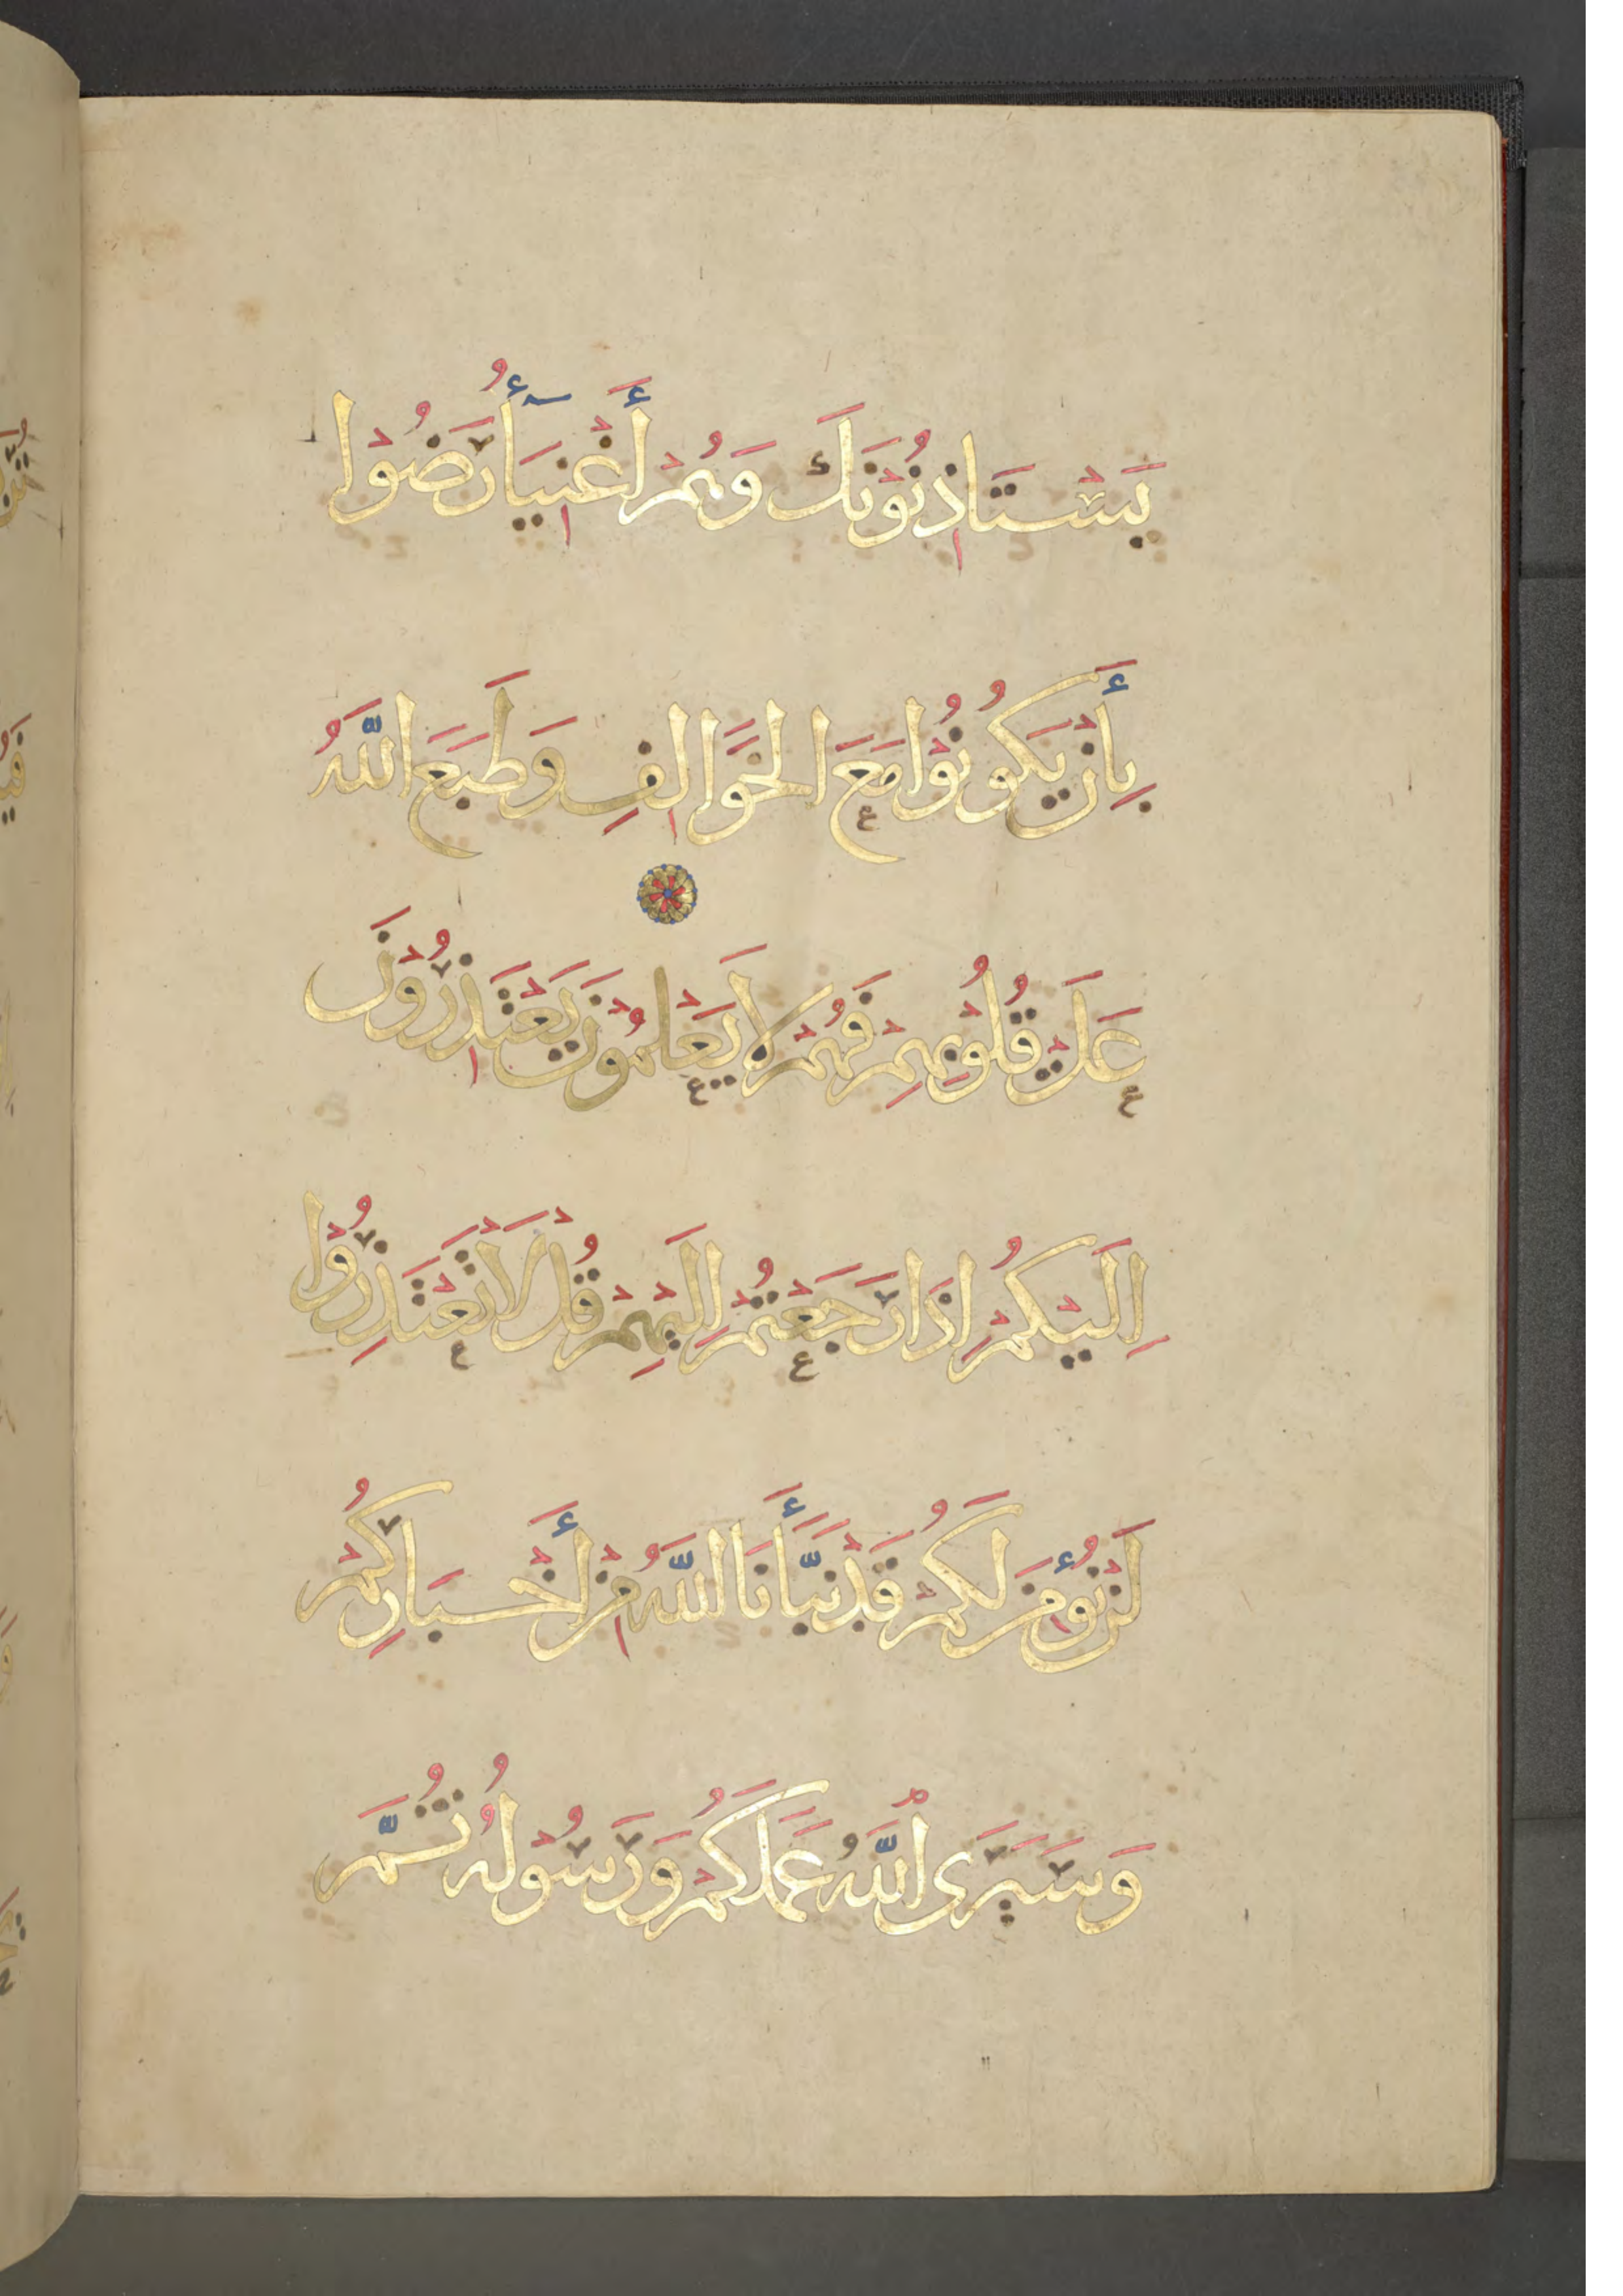 يَسْتَاذِنُوْنَكَ وَهُمْ أَغْنِيَاۤأُ رَضُوْا
بِأَنْ يَكُوْنُوْا مَعَ الْخَوَالِفِ وَطَبَعَ اللَّهُ
عَلَىْ قُلُوْبِهِمْ فَهُمْ لَا يَعْلَمُوْنَ يَعْتَذِرُوْنَ
اِلَيْكُمْ اِذَا رَجَعْتُمْ اِلَيْهِمْ قُلْ لَا تَعْتَذِرُوْا
لَنْ نُؤْمِنَ لَكُمْ قَدْ نَبَّأَنَا اللَّهُ مِنْ أَخْبَارِكُمْ
وَسَيَرَى اللَّهُ عَمَلَكُمْ وَرَسُوْلُهُ ثُمَّ